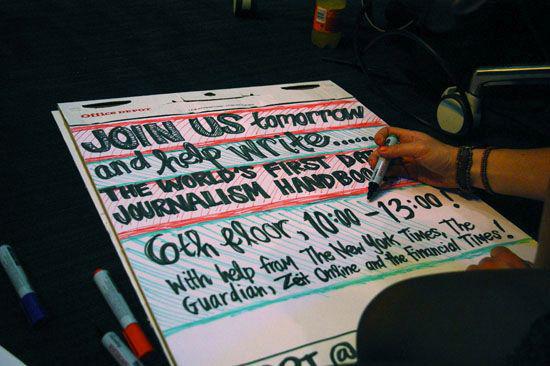 Office DEPOT
JOIN US tomorrow
and help write......
THE WORLD'S FIRST DATA
JOURNALISM HANDBOOK
6th floor, 10:00 - 13:00!
With help from The New York Times, The
Guardian, Zeit Online and the Financial Times!
@